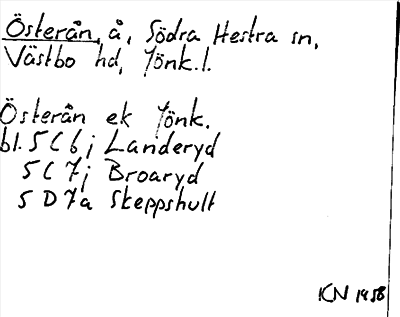 Österån, å, Södra Hestra sn,
Västbo hd, Jönk.l.
Österån ek Jönk.
bl. 5C6j Landeryd
5C7j Broaryd
5D7a Skeppshult
KN 1958